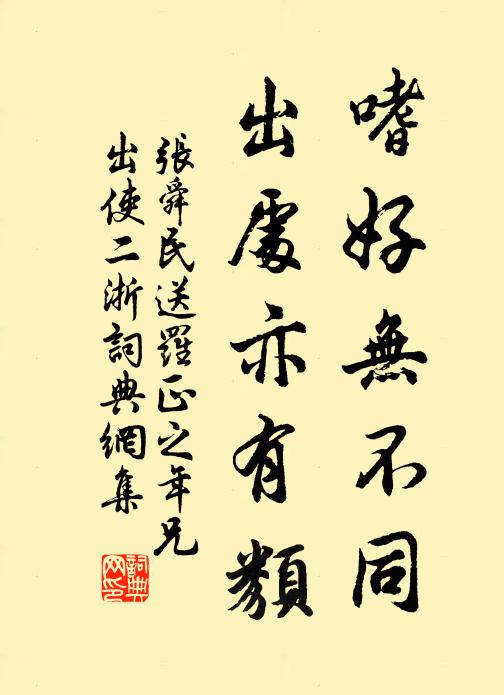 嗜好無不同
出處亦有類
張舜民送羅正之年兄
出使二浙詞典網集
詞典网印